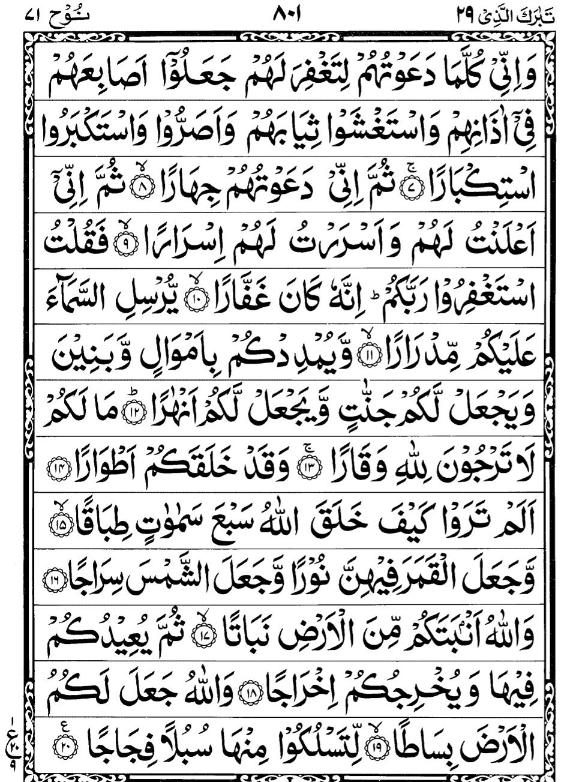 تبٰرك الذی ٢٩ ٨٠١ نوح ٧١
وَاِنِّیْ كُلَّمَا دَعَوْتُهُمْ لِتَغْفِرَ لَهُمْ جَعَلُوْۤا اَصَابِعَهُمْ
فِیْۤ اٰذَانِهِمْ وَاسْتَغْشَوْا ثِیَابَهُمْ وَاَصَرُّوْا وَاسْتَكْبَرُوا
اسْتِكْبَارًا ۚ ٧ ثُمَّ اِنِّیْ دَعَوْتُهُمْ جِهَارًا ۙ ٨ ثُمَّ اِنِّیْۤ
اَعْلَنْتُ لَهُمْ وَاَسْرَرْتُ لَهُمْ اِسْرَارًا ۙ ٩ فَقُلْتُ
اسْتَغْفِرُوْا رَبَّكُمْ ؕ اِنَّهٗ كَانَ غَفَّارًا ۙ ١٠ یُّرْسِلِ السَّمَآءَ
عَلَیْكُمْ مِّدْرَارًا ۙ ١١ وَّیُمْدِدْكُمْ بِاَمْوَالٍ وَّبَنِیْنَ
وَیَجْعَلْ لَّكُمْ جَنّٰتٍ وَّیَجْعَلْ لَّكُمْ اَنْهٰرًا ؕ ١٢ مَا لَكُمْ
لَا تَرْجُوْنَ لِلّٰهِ وَقَارًا ۚ ١٣ وَقَدْ خَلَقَكُمْ اَطْوَارًا ١٤
اَلَمْ تَرَوْا كَیْفَ خَلَقَ اللّٰهُ سَبْعَ سَمٰوٰتٍ طِبَاقًا ۙ ١٥
وَّجَعَلَ الْقَمَرَ فِیْهِنَّ نُوْرًا وَّجَعَلَ الشَّمْسَ سِرَاجًا ١٦
وَاللّٰهُ اَنْۢبَتَكُمْ مِّنَ الْاَرْضِ نَبَاتًا ۙ ١٧ ثُمَّ یُعِیْدُكُمْ
فِیْهَا وَیُخْرِجُكُمْ اِخْرَاجًا ١٨ وَاللّٰهُ جَعَلَ لَكُمُ
الْاَرْضَ بِسَاطًا ۙ ١٩ لِّتَسْلُكُوْا مِنْهَا سُبُلًا فِجَاجًا ࣖ ٢٠
١
ع ٢٠
٩